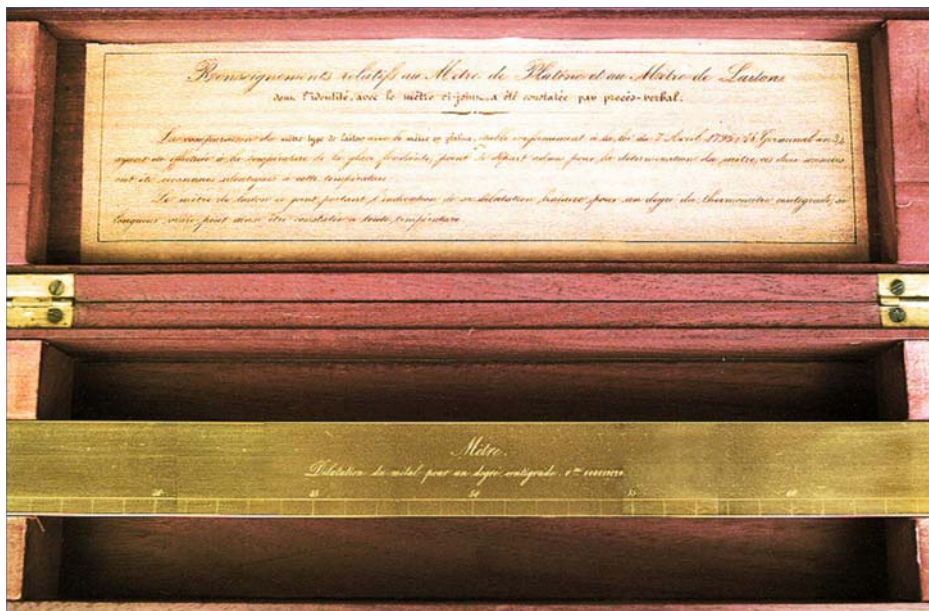 Renseignements relatifs au Mètre de Platine et au Mètre de Laiton
dont l'identité, avec le mètre ci-joint, a été constatée par procès-verbal.
La comparaison du mètre type de Laiton avec le mètre en platine, établie conformément à la loi du 7 Avril 1795 (18 Germinal an 3)
ayant été effectuée à la température de la glace fondante, point de départ admis pour la détermination du mètre, ces deux mesures
ont été reconnues identiques à cette température.
Le mètre de laiton ci-joint portant l'indication de sa dilatation linéaire pour un degré du thermomètre centigrade, sa
longueur vraie peut donc être constatée à toute température.
Mètre.
Dilatation du métal pour un degré centigrade
45 50 55 60